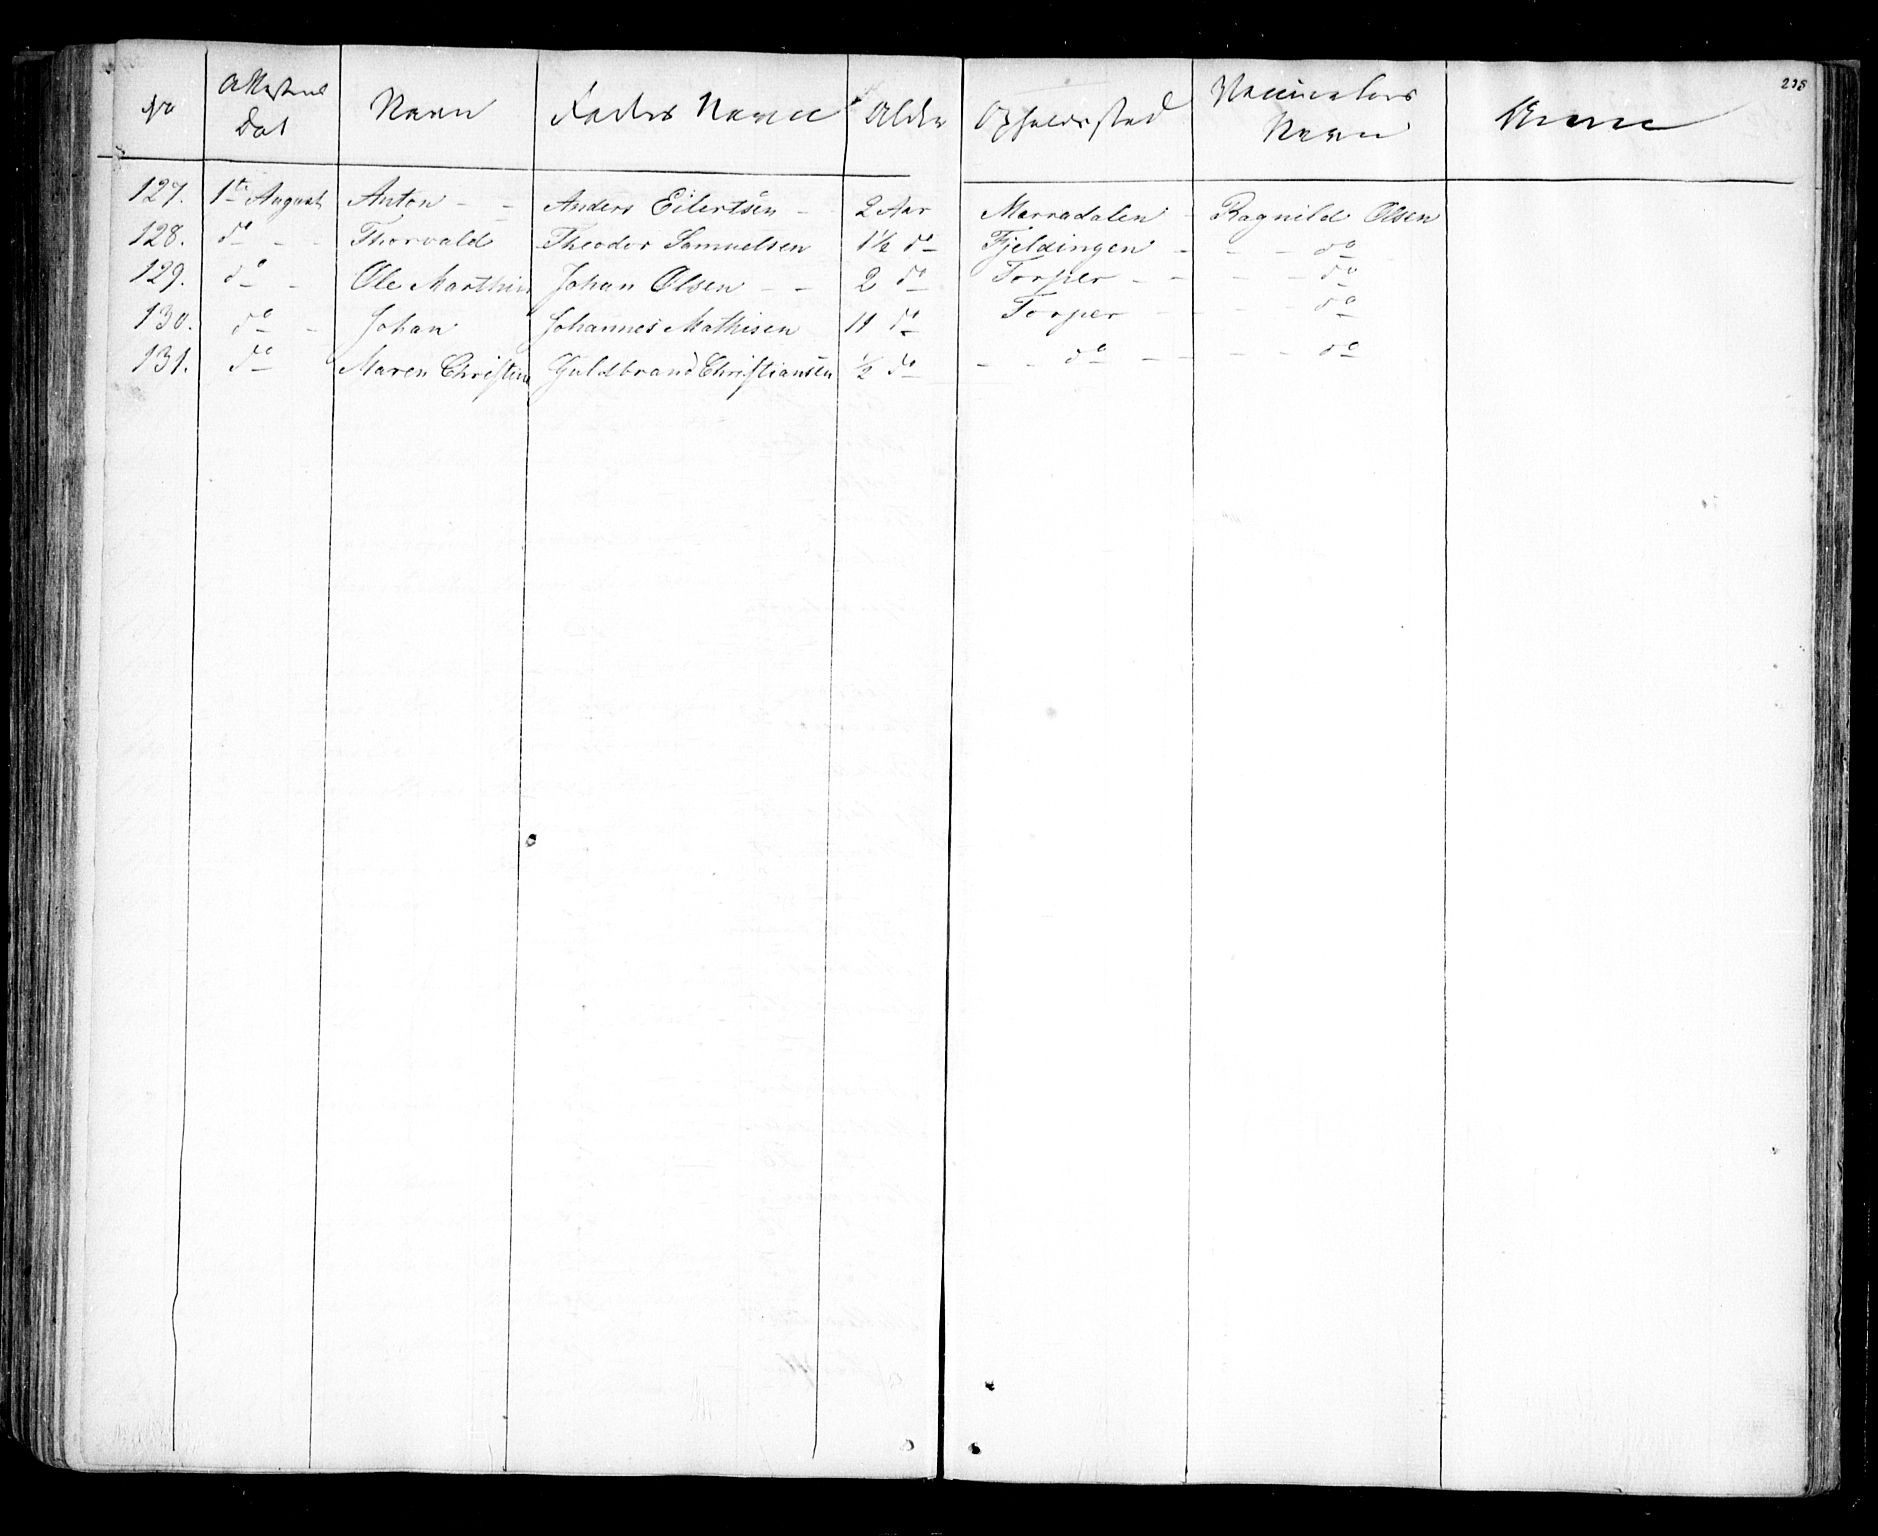 238
No Attestens Dat Navn Faders Navn Alder Opholdssted Vaccinators Navn
127. 1te August Anton - - Anders Eilertsen - 2 Aar Marradalen - Ragnild Olsen
128. do - - Thorvald Theodor Samuelsen 1½ do Fjeldingen - - - do
129. do - Ole Marthin Johan Olsen - - 2 do Torper - - - - do
130. do - Johan Johannes Mathisen 11 do Torper - - - do
131. do Maren Christine Guldbrand Christiansen ½ do - - do - - - - do